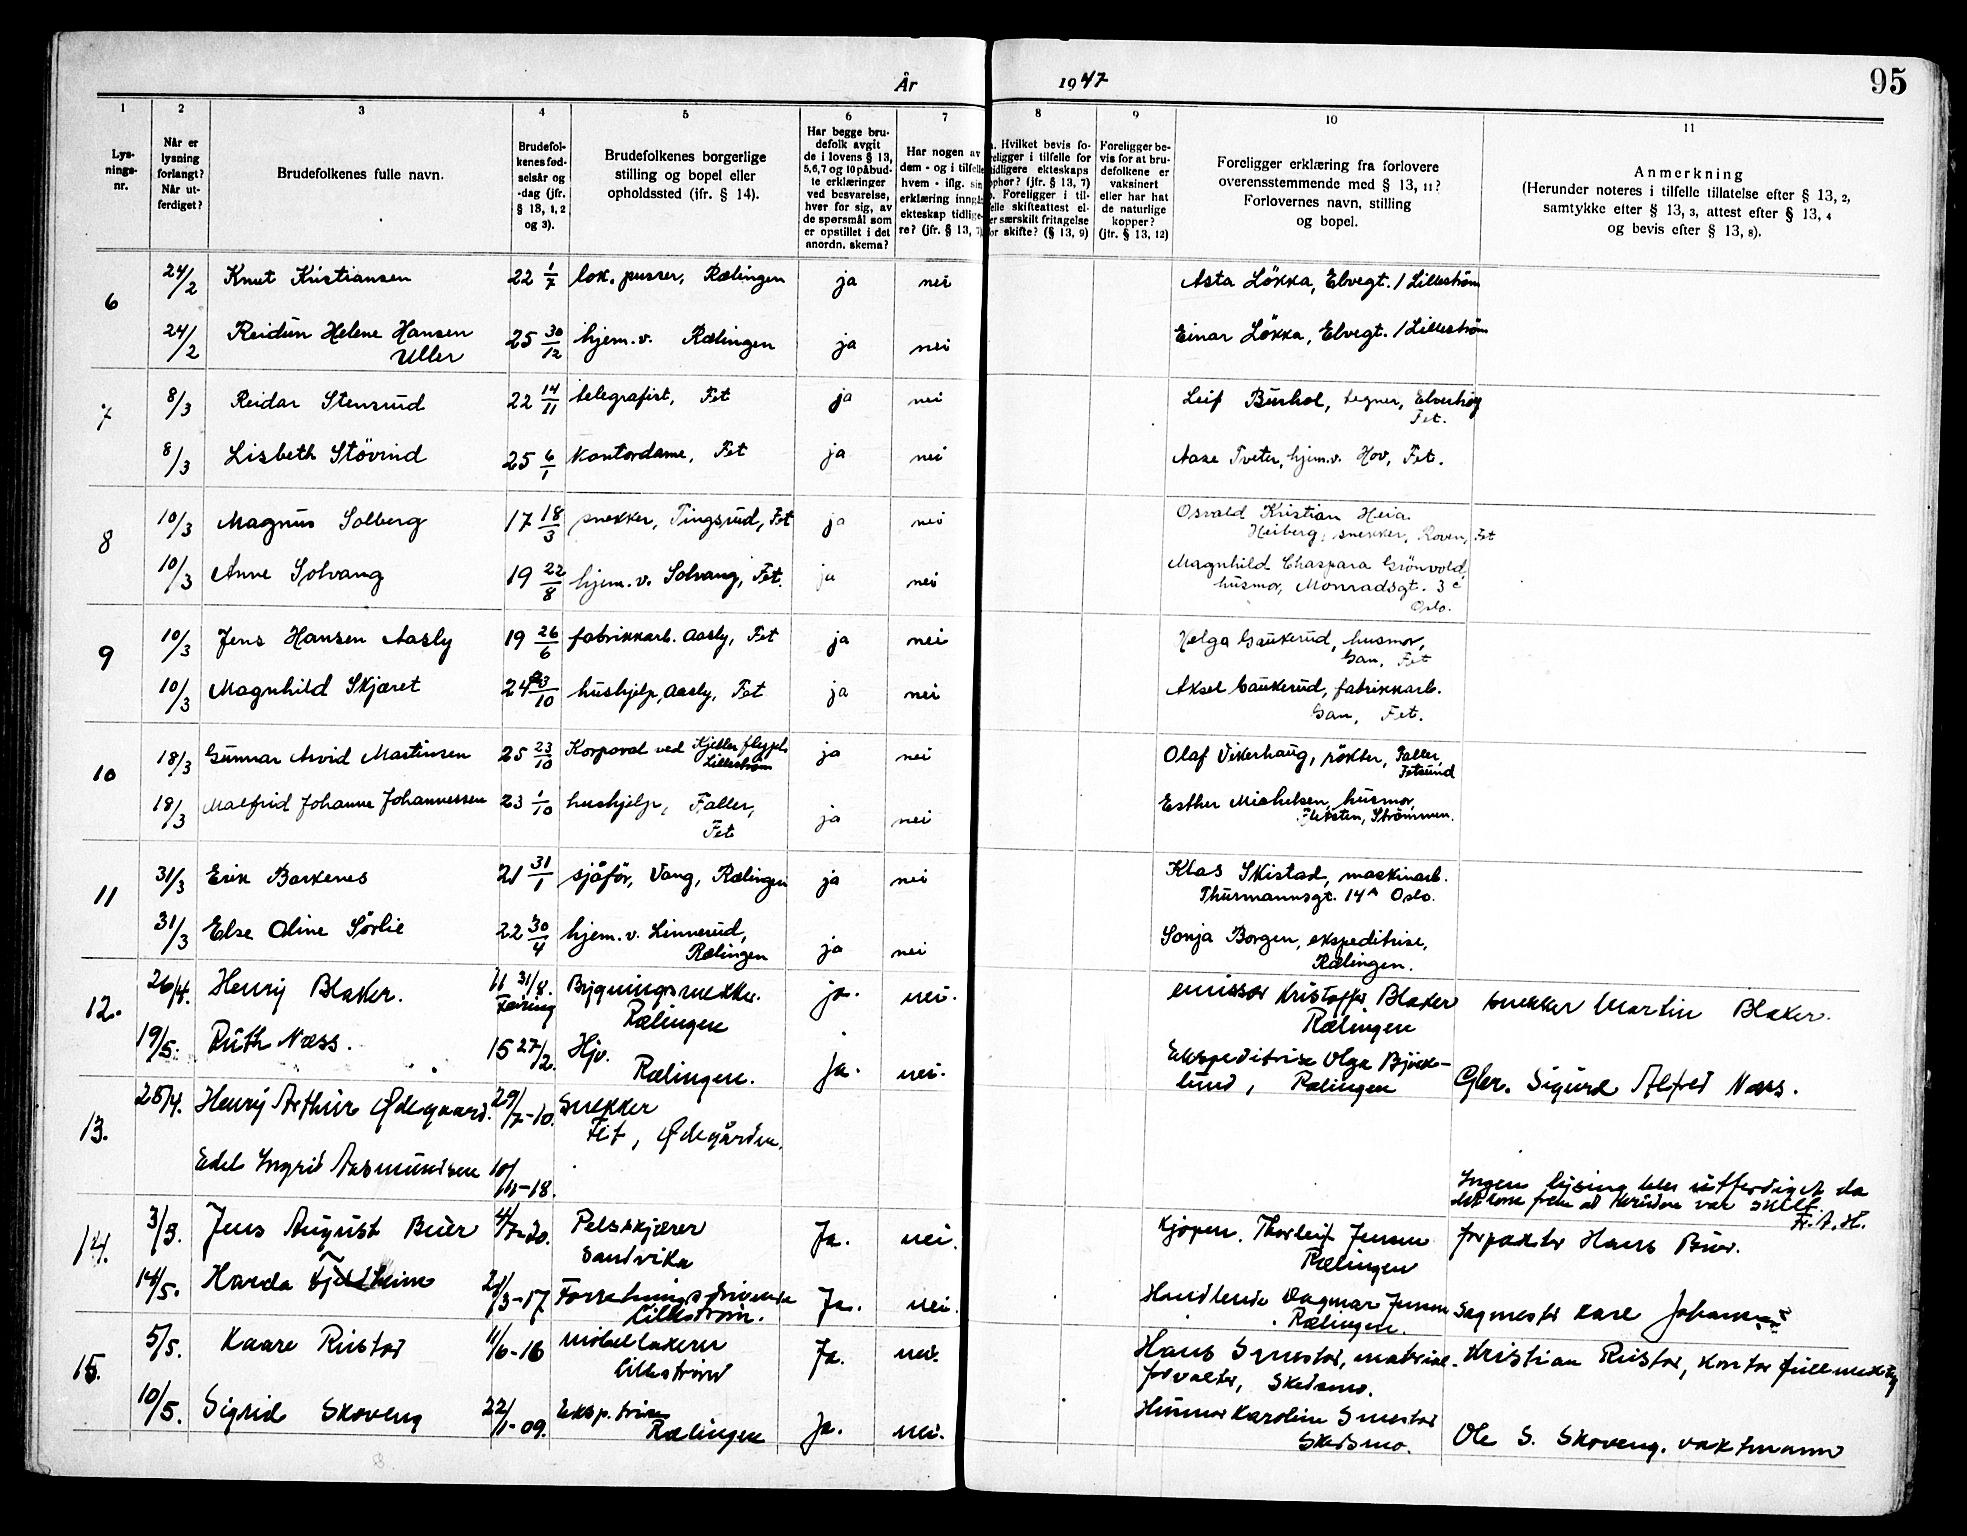 År 1947
95
1 2 3 4 5 6 7 8 9 10 11
Lys-
nings-
nr.
Når er
lysning
forlangt?
Når ut-
ferdiget?
Brudefolkenes fulle navn.
Brudefol-
kenes fød-
selsår og
-dag (jfr.
§ 13, 1, 2
og 3).
Brudefolkenes borgerlige
stilling og bopel eller
opholdssted (ifr. § 14).
Har begge bru-
defolk avgit
de i lovens § 13,
5,6,7 og 10 påbud-
te erklæringer
ved besvarelse,
hver for sig, av
de spørsmål som
er opstillet i det
anordn. skema?
Har nogen av
dem - og i tilfelle
hvem - iflg. sin
erklæring inngåt
ekteskap tidlige-
re? (jfr. § 13, 7)
a. Hvilket bevis fo-
religger i tilfelle for
tidligere ekteskaps
ophør? (jfr. § 13, 7)
b. Foreligger i til-
felle skifteattest el-
ler særskilt fritagelse
for skifte? (§ 13, 9)
Foreligger be-
vis for at bru-
defolkene er
vaksinert
eller har hat
de naturlige
kopper?
(jfr. § 13, 12)
Foreligger erklæring fra forlovere
overensstemmende med § 13, 11?
Forlovernes navn, stilling
og bopel.
Anmerkning
(Herunder noteres i tilfelle tillatelse efter § 13, 2,
samtykke efter § 13, 3, attest efter § 13, 4
og bevis efter § 13, 8).
6 24/2 Knut Kristiansen 22 1/7 lok. pusser, Rælingen ja nei Asta Lökka, Elvegt. 1 Lillestrøm
24/2 Reidun Helene Hansen 25 30/12 hjem.v. Rælingen ja nei Einar Lökka, Elvegt. 1 Lillestrøm
Uller
7 8/3 Reidar Stensrud 22 14/11 telegrafist, Fet ja nei Leif Burhol, tegner, Elverhøy
Fet.
8/3 Lisbeth Stövind 25 6/1 kontordame, Fet ja nei Aase Tveter, hjem.v. Hov, Fet.
8 10/3 Magnus Solberg 17 18/3 snekker, Tingsrud, Fet ja nei Osvald Kristian Heia
Heiberg, snekker, Roven, Fet
10/3 Anne Solvang 19 22/8 hjem.v. Solvang, Fet. ja nei Magnhild Chaspara Grönvold,
husmor, Monradsgt. 3 c
Oslo.
9 10/3 Jens Hansen Aasly 19 26/6 fabrikkarb. Aasly, Fet ja nei Helga Gaukerud, husmor,
Gan, Fet
10/3 Magnhild Skjæret 24 23/10 hushjelp, Aasly, Fet ja nei Aksel Gaukerud, fabrikkarb.
Gan, Fet.
10 18/3 Gunnar Arvid Martinsen 25 23/10 Korporal ved Kjeller flyppl. ja nei Olaf Vikerhaug, rökter, Faller,
Lillestrøm Fetsund
18/3 Malfrid Johanne Johannessen 23 1/10 hushjelp, Faller, ja nei Esther Michelsen, husmor,
Fet Fleksten, Strömmen.
11 31/3 Erik Barkenes 21 31/1 sjåför, Vang, Rælingen ja nei Klas Skistad, maskinarb.
Thurmannsgt. 14A Oslo.
31/3 Else Oline Sörlie 22 30/4 hjem.v. Linnerud, ja nei Sonja Borgen, ekspeditrise,
Rælingen Rælingen.
12. 26/4. Henry Blaker. 11 31/8. Bygningssnekker. ja. nei. emissær Kristoffer Blaker snekker Martin Blaker.
Feiring Rælingen Rælingen
19/5. Ruth Næss. 15 27/2. Hjv. Ja. nei. Ekspeditrise Olga Björk-
Rælingen. lund, Rælingen Gbr. Sigurd Alfred Næss.
13. 25/4. Henry Arthur Ødegaard. 29/7-10. Snekker
Fet, Ødegården.
Edel Ingrid Aasmundsen 10/11-18.
Ingen lysing blev utferdiget da
det kom frem at bruden var skilt.
Fr. A. H.
14. 3/5. Jens August Buer 4/7-20. Pelsskjærer Ja. nei. Kjøpm. Thorleif Jensen forpakter Hans Buer.
Sandvika Rælingen
14/5. Harda Fjeldheim 21/3-17 Forretningsdrivende Ja. nei. Handlende Dagmar Jensen Sagmester Karl Johannes
Lillestrøm. Rælingen.
15. 5/5. Kaare Rustad 11/6-16 møbellakerer Ja. nei. Hans Smestad, material- Kristian Rustad, kontorfullmektig
Lillestrøm forvalter, Skedsmo.
10/5. Sigrid Skoveng 22/1-09. Eksp.trise Ja. nei. Husmor Karoline Smestad
Rælingen Skedsmo. Ole S. Skoveng. vaktmann